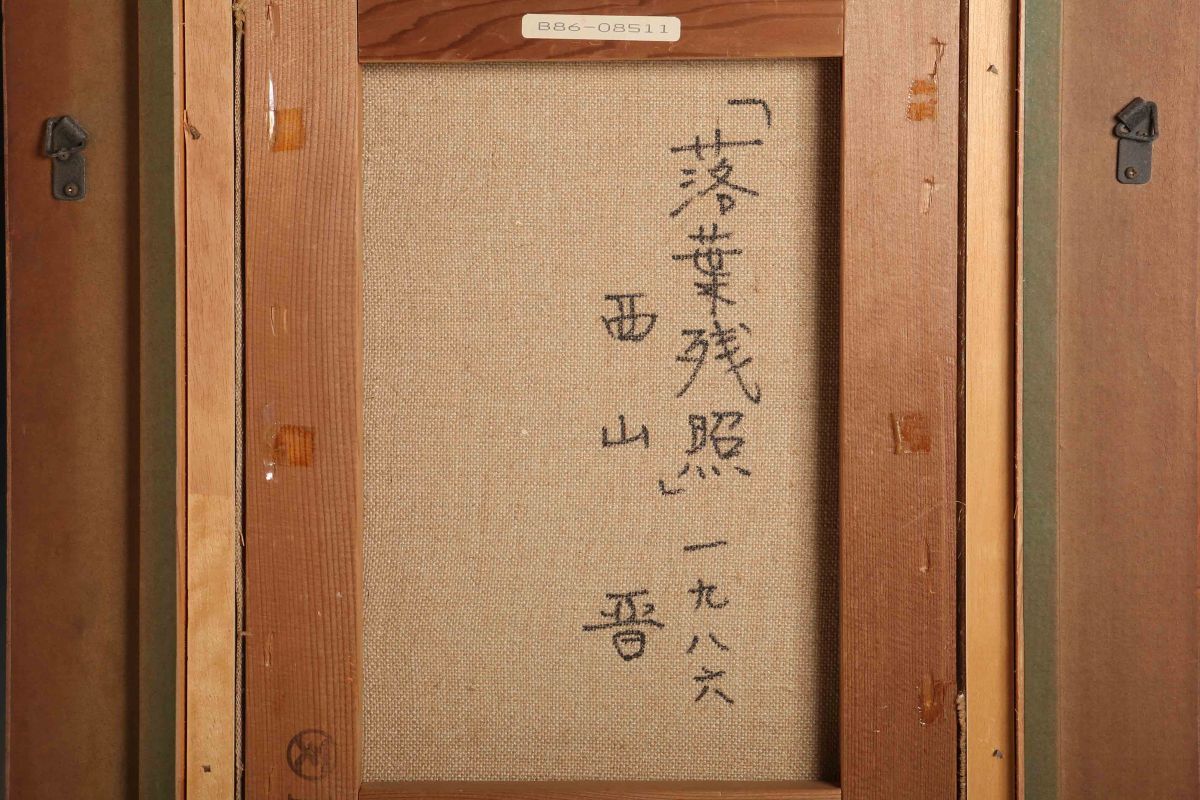 B86-08511
「落葉残照」一九八六
西山晋